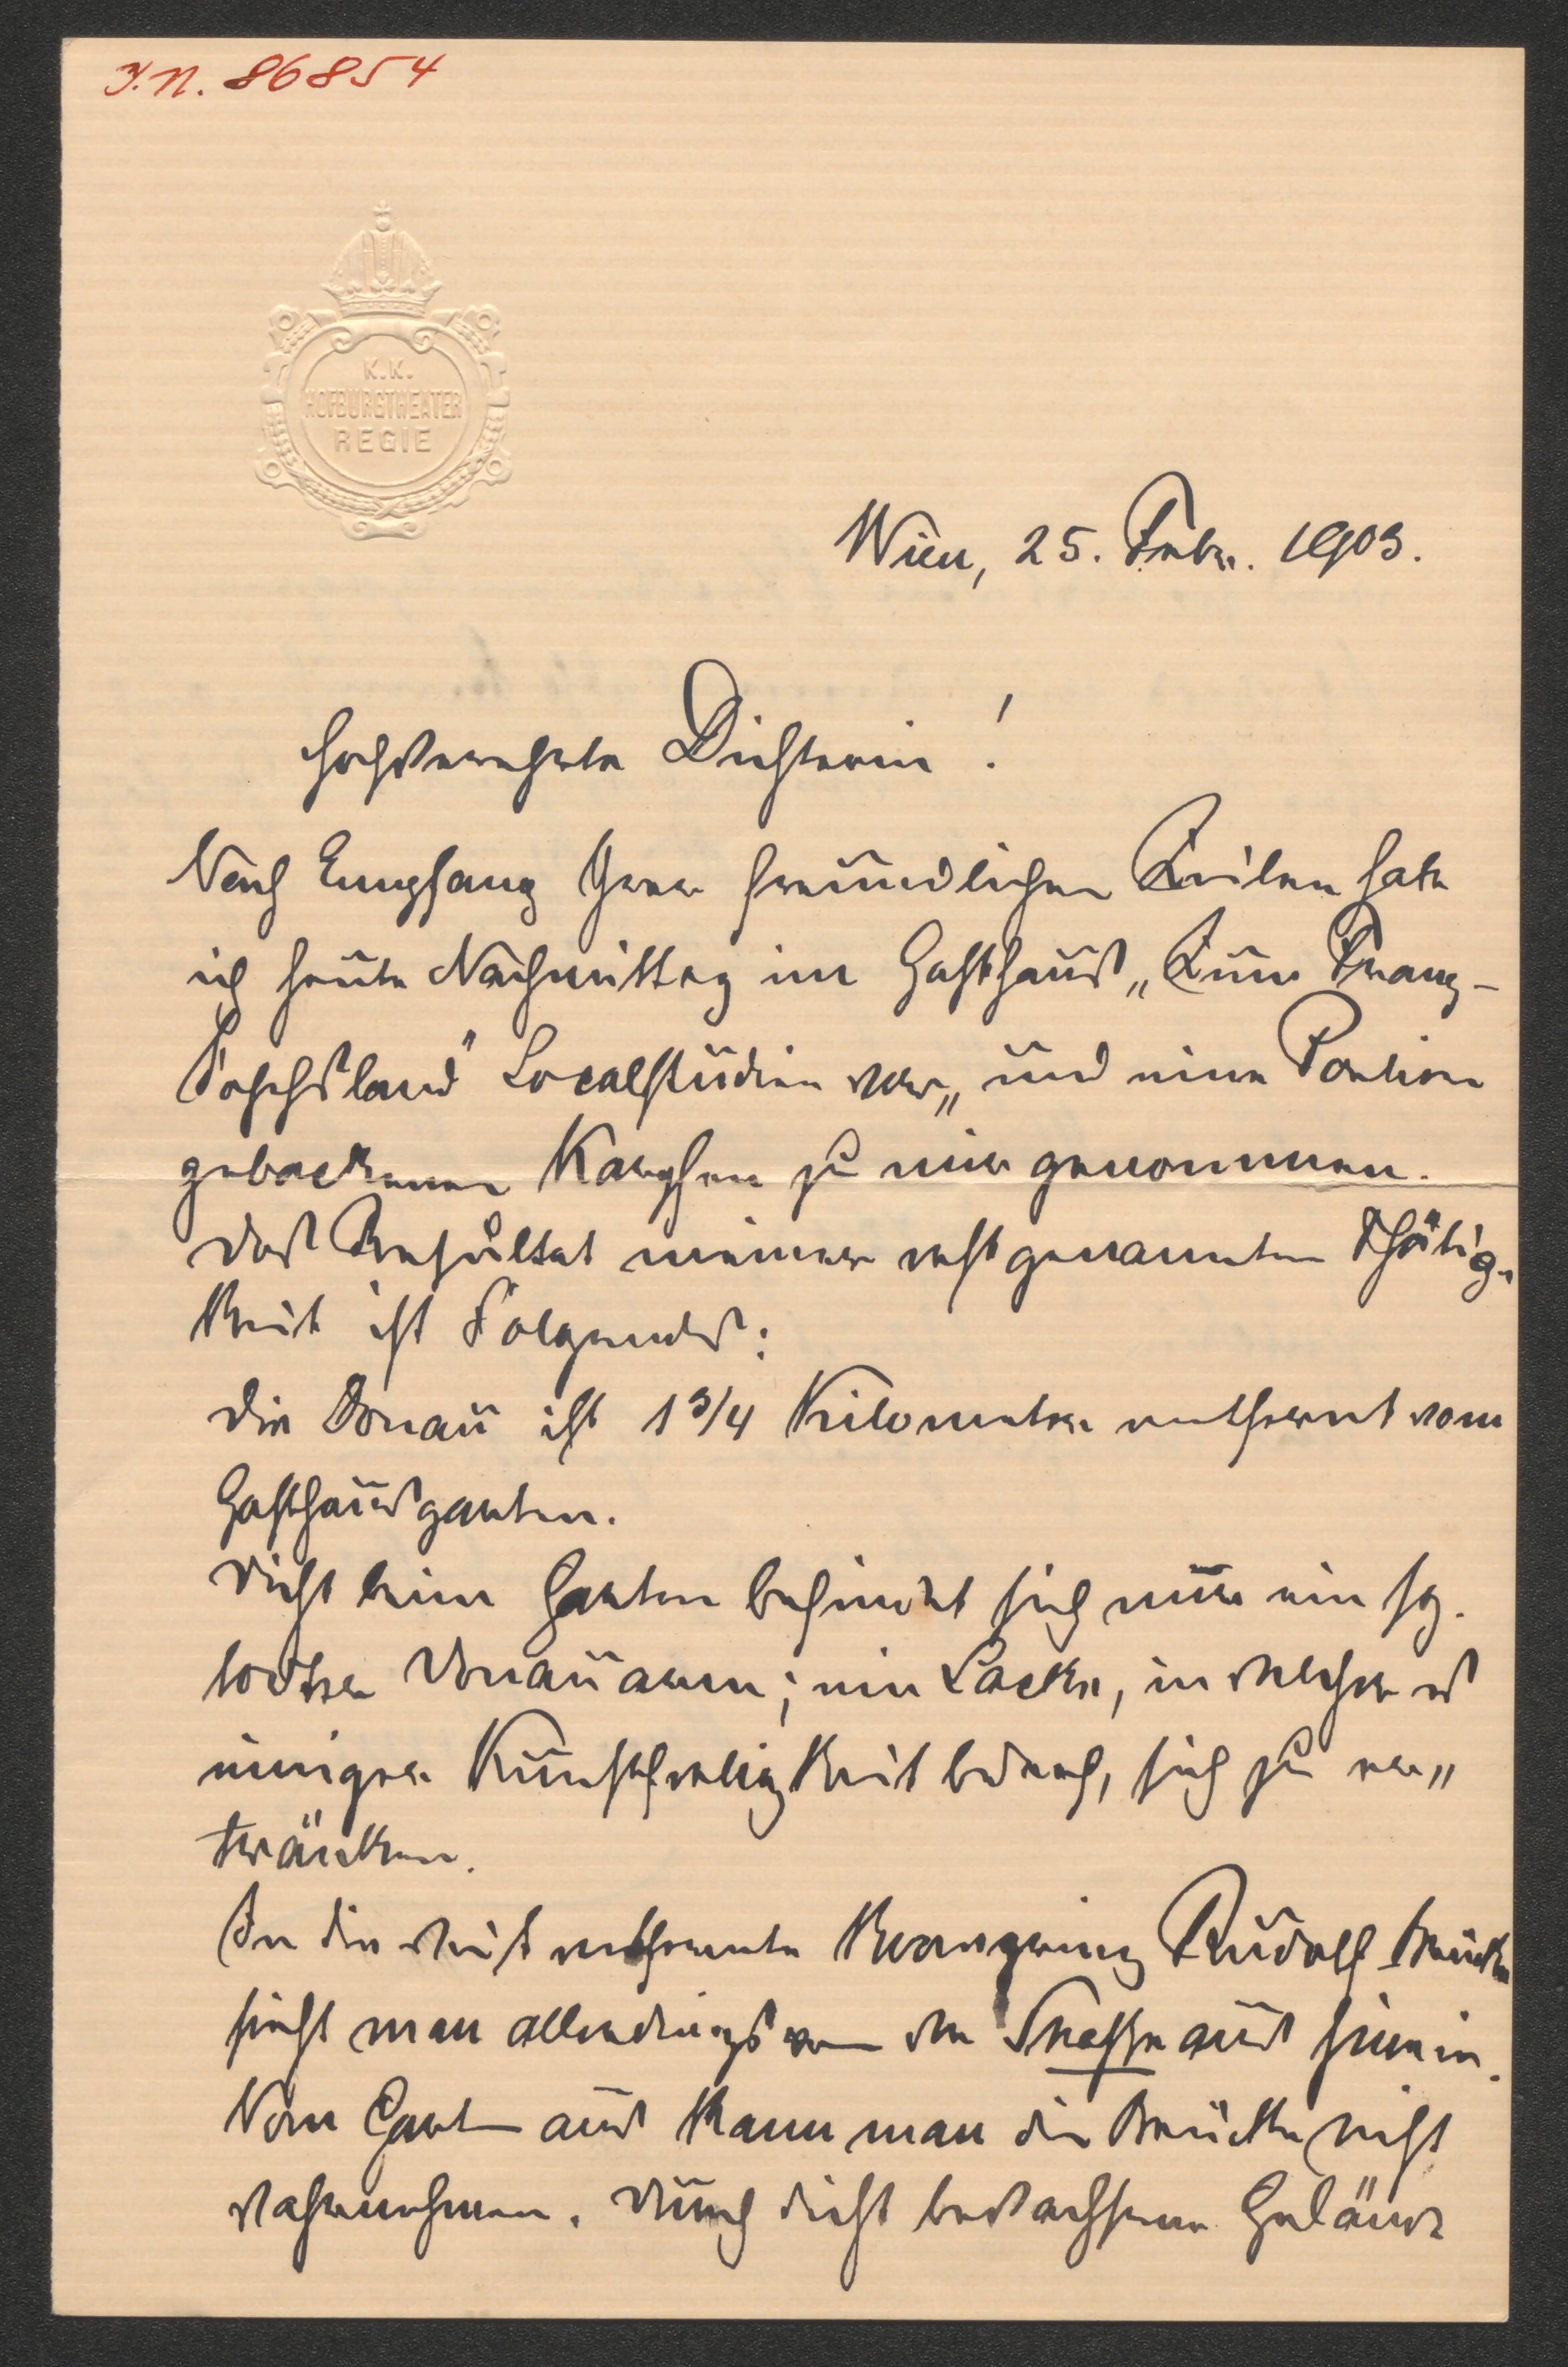 J.N. 86854
K.K.
HOFBURGTHEATER
REGIE
Wien, 25. Febr. 1903.
Hochverehrte Dichterin!
Nach Empfang Ihrer freundlichen Zeilen habe
ich heute Nachmittag im Gasthaus „Zum Franz-
Josefsland" Localstudien vor„ und eine Portion
gebackener Karpfen zu mir genommen.
Das Resultat meiner erstgenannten Thätig-
keit ist Folgendes:
Die Donau ist 1 3/4 Kilometer entfernt vom
Gasthausgarten.
Dicht beim Garten befindet sich nur ein sg.
todter Donauarm; eine Lacke, in welcher es
einiger Kunstfertigkeit bedarf, sich zu er„
tränken.
In die weit entfernte Kronprinz Rudolf Brücke
sieht man allerdings von der Straße aus hinein.
Vom Garten aus kann man die Brücke nicht
wahrnehmen. Durch dicht bewachsene Gelände